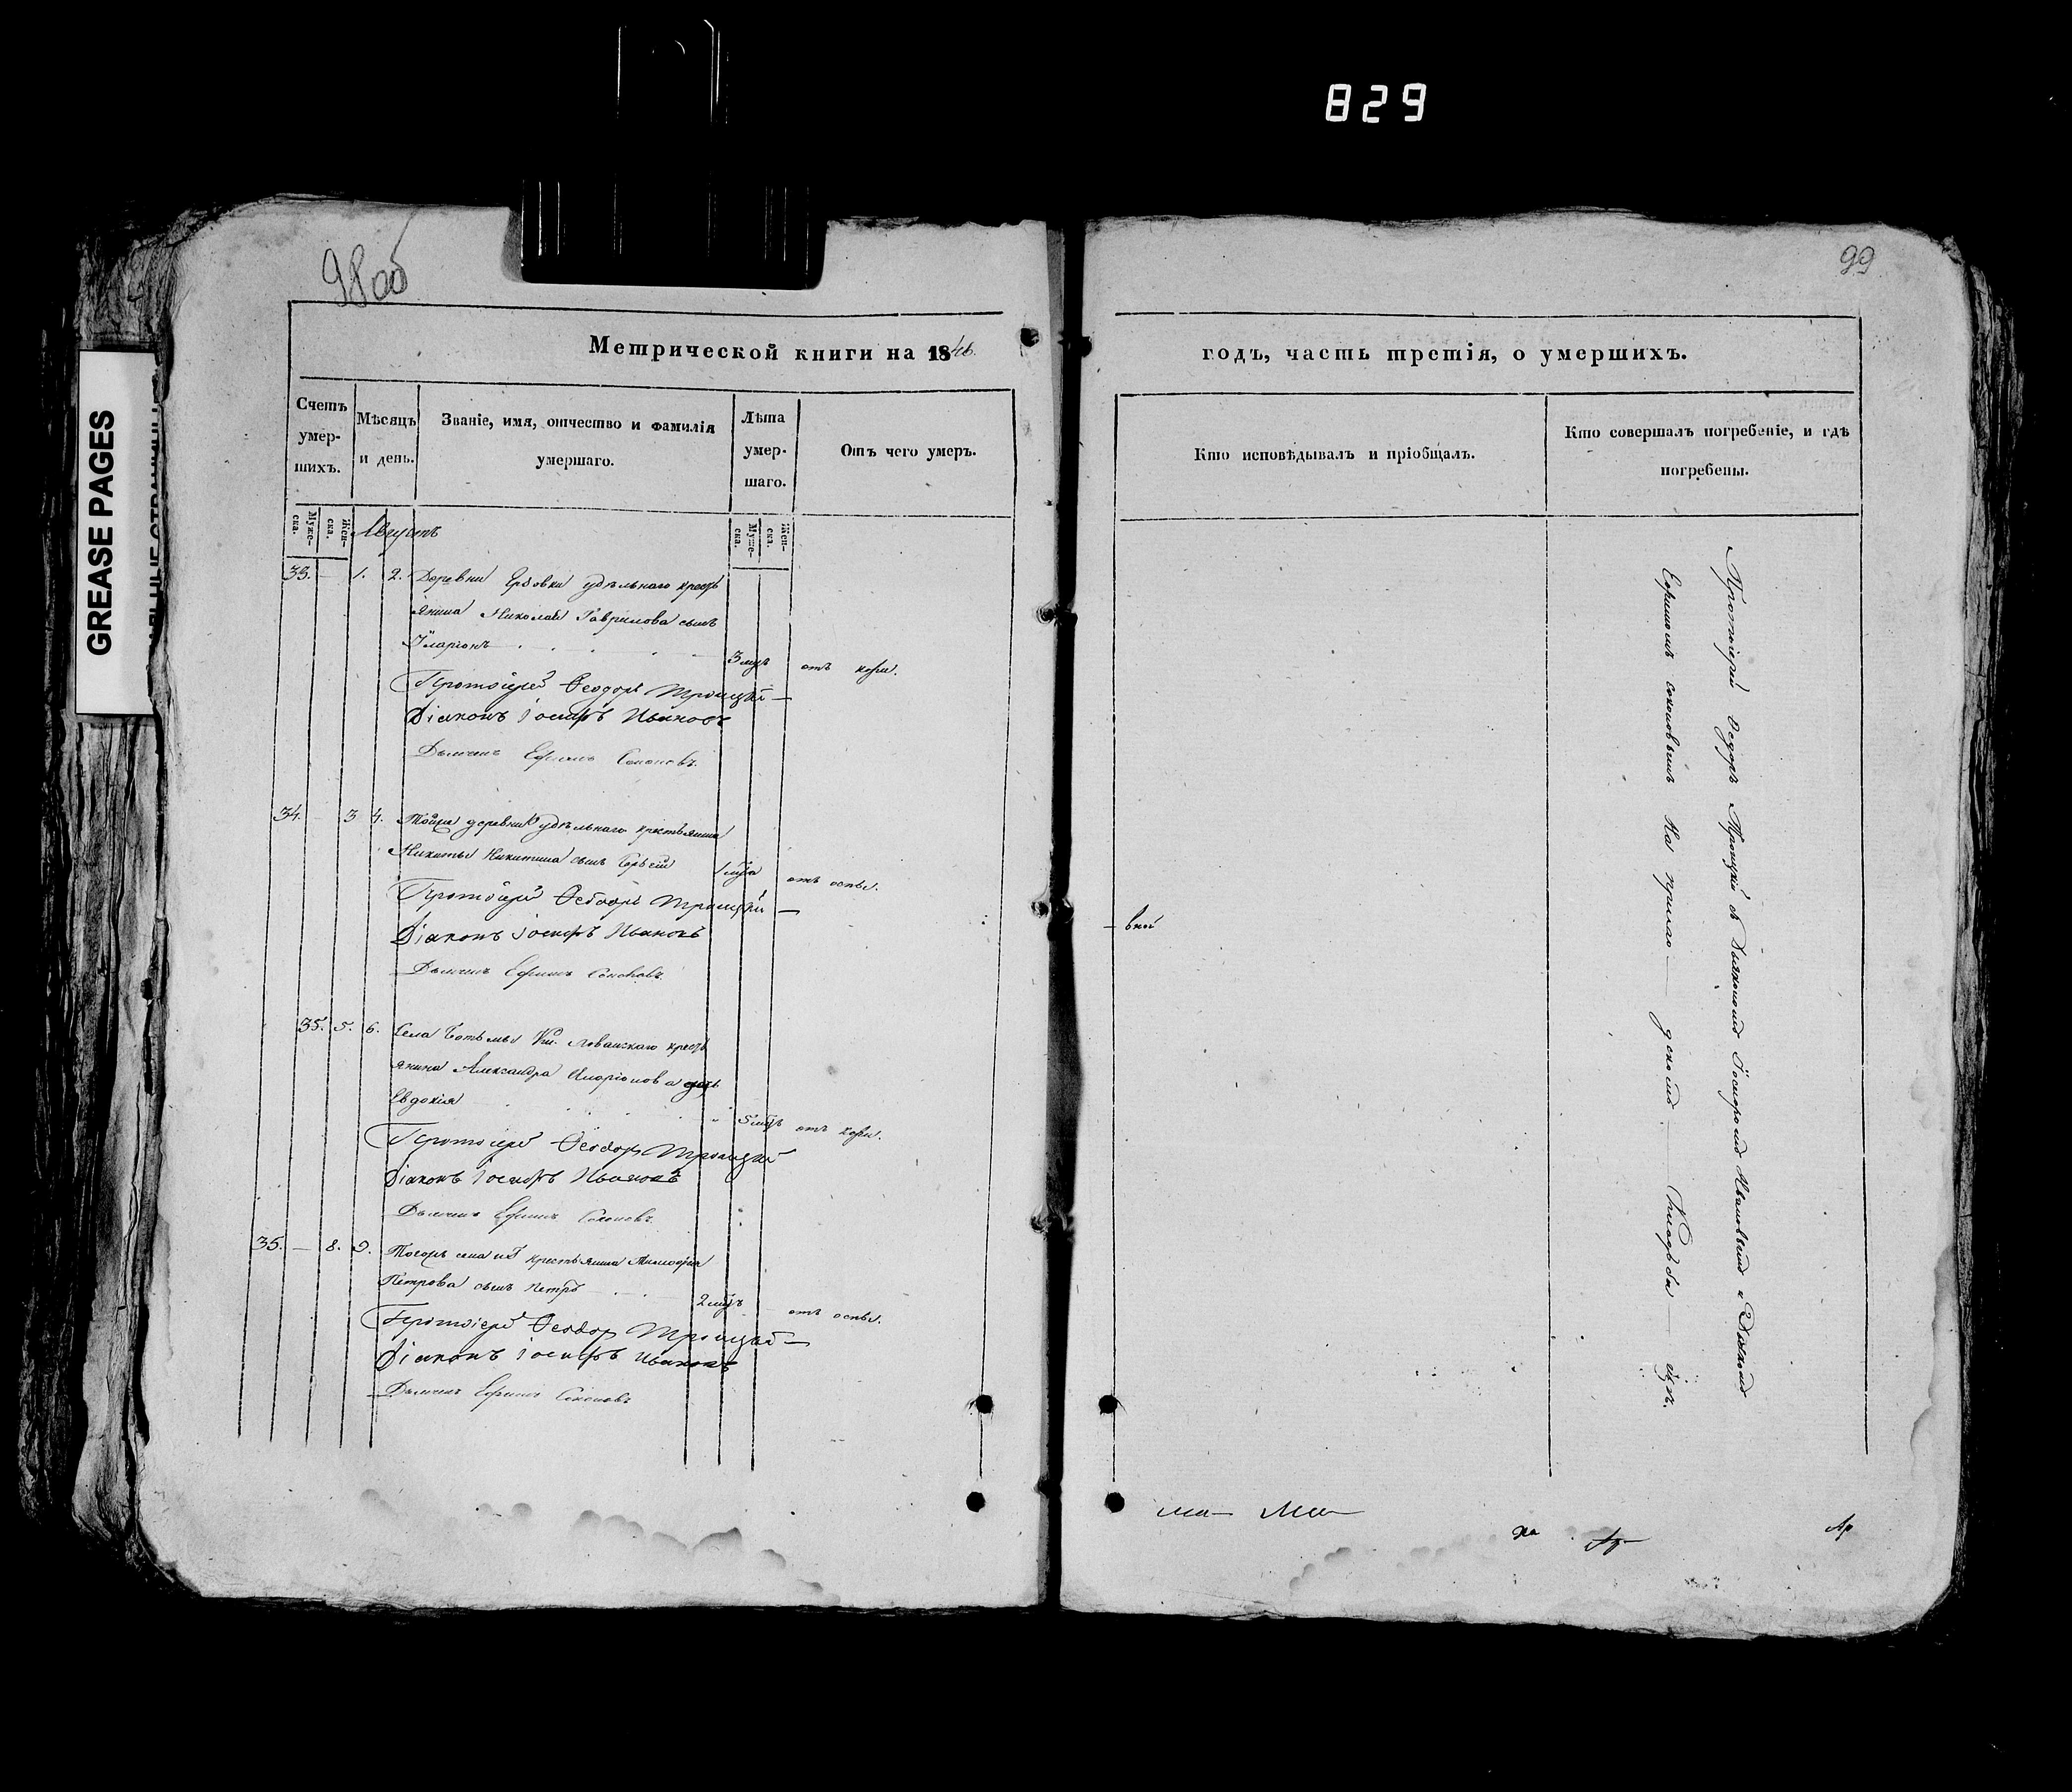 829
GREASE PAGES
98 об
99
Метрической книги на 1846
годъ, часть третія, о умершихъ.
Счетъ умер-шихъ.
Мѣсяцъ и день.
Званіе, имя, отчество и фамилія умершаго.
Лѣта умер-шаго.
Отъ чего умеръ.
Кто исповѣдывалъ и пріобщалъ.
Кто совершалъ погребеніе, и гдѣ погребены.
Муже-ска.
Жен-ска.
Муже-ска.
Жен-ска.
Августъ
33. — 1. 2. Деревни удѣльнаго кресть
янина Николая Гаврилова сынъ
Иларіонъ 3 мцъ отъ кори.
Протоіерей Ѳеодоръ Троицкій
Діаконъ Іосифъ Ивановъ
Дьячекъ Ефимъ
34. — 3 4. Тойже деревни удѣльнаго крестьянина
Никиты Никитина сынъ Сергій 1 отъ оспы.
Протоіерей Ѳеодоръ Троицкій
Діаконъ Іосифъ Ивановъ
Дьячекъ Ефимъ
35. 5. 6. Села кресть
янина Александра Иларіонова дочь
Евдокія 5 мцъ отъ кори.
Протоіерей Ѳеодоръ Троицкій
Діаконъ Іосифъ Ивановъ
Дьячекъ Ефимъ
35. — 8. 9. Тогожъ села крестьянина
Петрова сынъ Петръ 2 мцъ отъ оспы.
Протоіерей Ѳеодоръ Троицкій
Діаконъ Іосифъ Ивановъ
Дьячекъ Ефимъ
Протоіерей Ѳедоръ Троицкій съ Діакономъ Іосифомъ Ивановымъ и Дьячкомъ
На приход— скомъ — Кладби — щѣ.